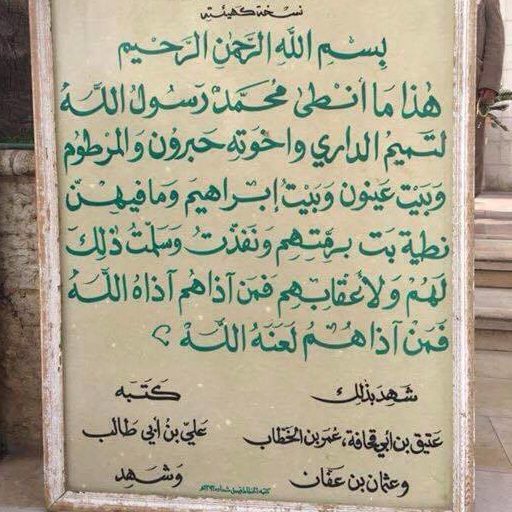 نسخة كهيئته
بِسْمِ اللهِ الرَّحْمٰنِ الرَّحِيْمِ
هٰذا مَا أنْطىٰ مُحَمَّدْ رَسُولُ اللهُ
لتَميمُ الداري واخوَتِهِ حَبرُون وَالمَرطوُم
وَبَيْت عَينون وَبَيْتُ إبْراهيَم وَمَا فيهِنّ
نطية بَت برمّتِهم وَنفذتُ وَسَلمّتُ ذٰلِكَ
لَهُمْ وَلأعقابِهِم فمَن آذاهُم آذاهُ اللهُ
فَمَنْ آذاهُمْ لَعَنَهُ اللهُ ؟
شَهِدَ بذلِكَ كَتَبَه
عَتيق بن أبي قحافة، عُمَر بن الخَطاب عَليّ بنُ أبي طالب
وعثمان بن عَفان وَشَهِد